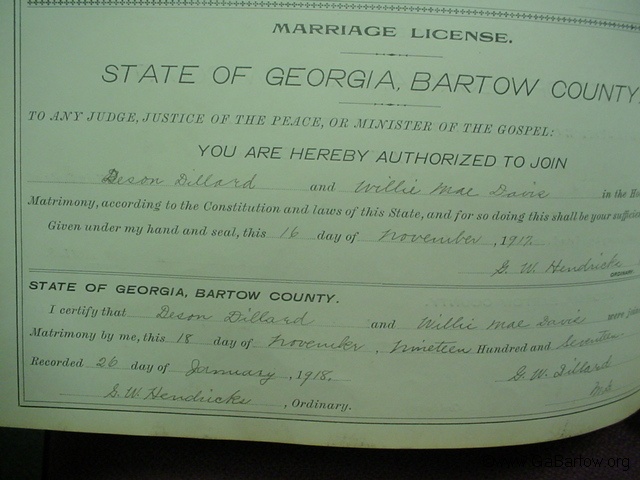 MARRIAGE LICENSE.
STATE OF GEORGIA, BARTOW COUNTY
TO ANY JUDGE, JUSTICE OF THE PEACE, OR MINISTER OF THE GOSPEL:
YOU ARE HEREBY AUTHORIZED TO JOIN
Deson Dillard and Willie Mae Davis in the Ho
Matrimony, according to the Constitution and laws of this State, and for so doing this shall be your sufficie
Given under my hand and seal, this 16 day of November, 1917.
G. W. Hendricks
ORDINARY
STATE OF GEORGIA, BARTOW COUNTY.
I certify that Deson Dillard and Willie Mae Davis were joine
Matrimony by me, this 18 day of November, Nineteen Hundred and Seventeen
Recorded 26 day of January, 1918. G. W. Dillard
G. W. Hendricks, Ordinary.
GaBartow.org